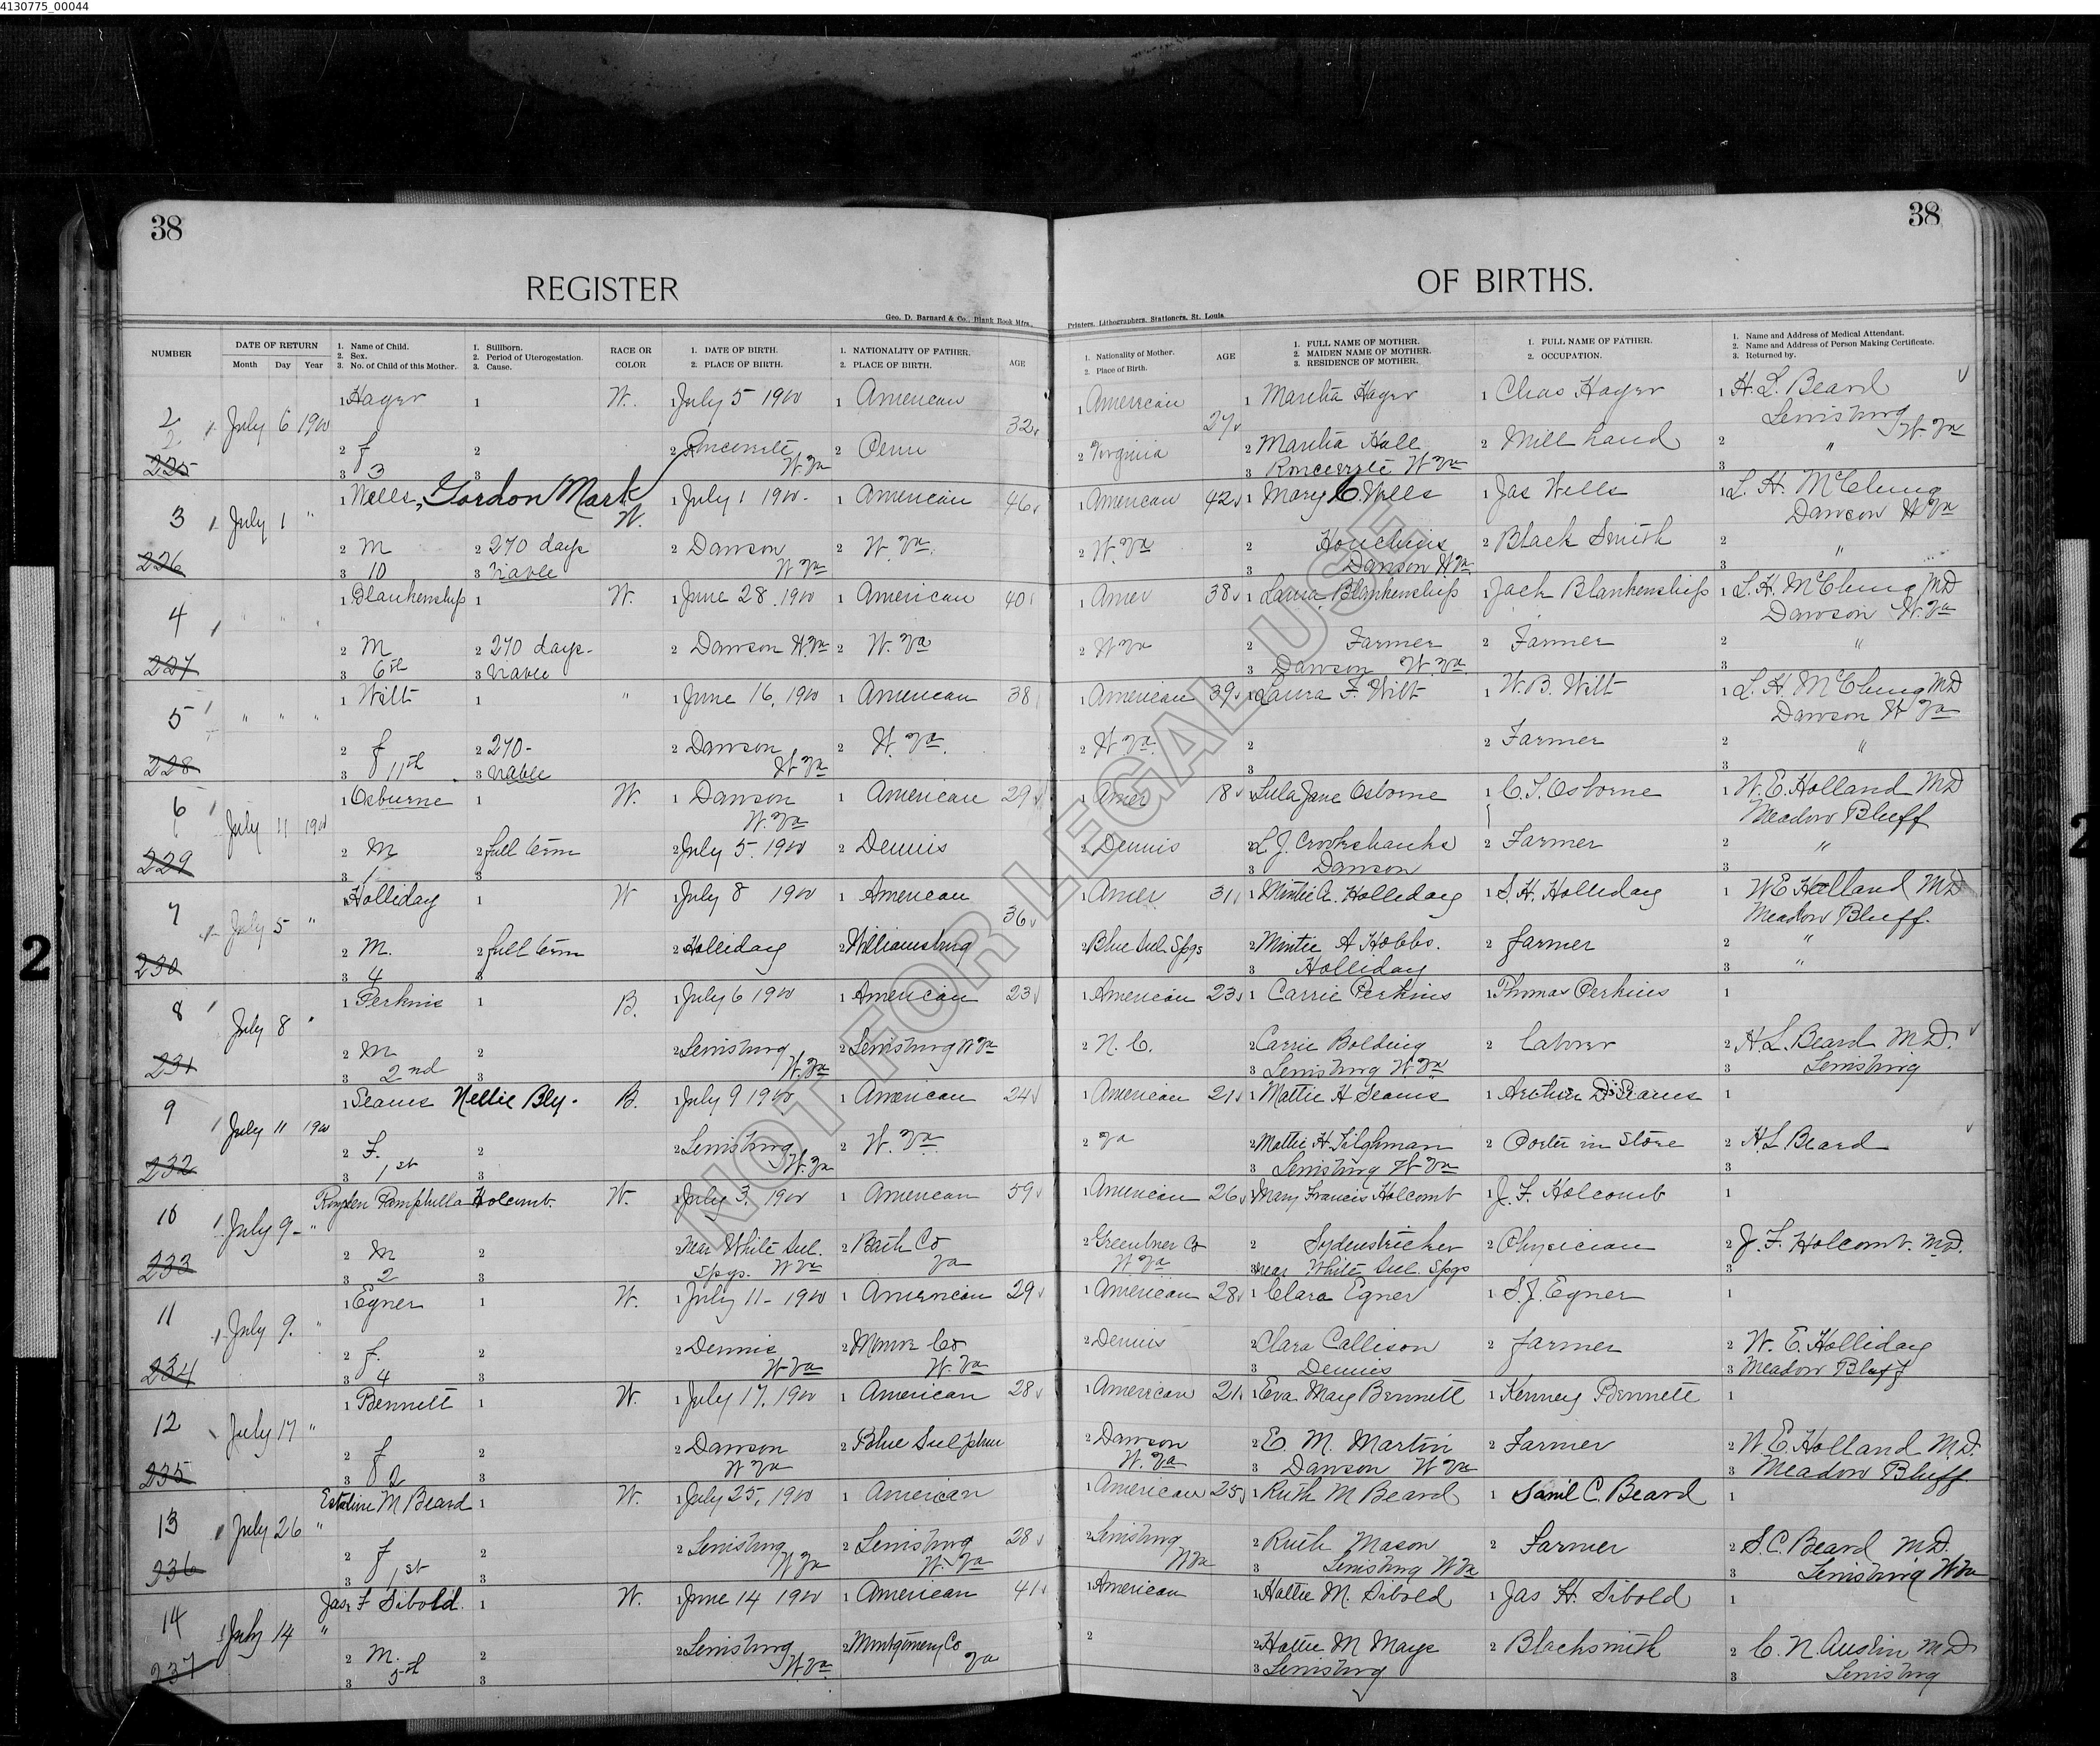 4130775_00044
38
38
REGISTER
OF BIRTHS.
Geo. D. Barnard & Co., Blank Book Mfrs.,
Printers, Lithographers, Stationers, St. Louis
NUMBER
DATE OF RETURN
Month Day Year
1. Name of Child.
2. Sex.
3. No. of Child of this Mother.
1. Stillborn.
2. Period of Uterogestation.
3. Cause.
RACE OR
COLOR
1. DATE OF BIRTH.
2. PLACE OF BIRTH.
1. NATIONALITY OF FATHER.
2. PLACE OF BIRTH.
AGE
1. Nationality of Mother.
2. Place of Birth.
AGE
1. FULL NAME OF MOTHER.
2. MAIDEN NAME OF MOTHER.
3. RESIDENCE OF MOTHER.
1. FULL NAME OF FATHER.
2. OCCUPATION.
1. Name and Address of Medical Attendant.
2. Name and Address of Person Making Certificate.
3. Returned by.
1 Hager 1 W. 1 July 5 1900 1 American 32 1 American 27 1 Martha Hager 1 Chas Hager 1 H. L. Beard
2 July 6 1900 Lewisburg W. Va
2 f 2 2 Ronceverte W. Va 2 Penn 2 Virginia 2 Martha Hall 2 Mill hand 2 "
225 3 3 3 3 Ronceverte W Va 3
1 Wells, Gordon Mark W. 1 July 1 1900 - 1 American 46 1 American 42 1 Mary C. Wells 1 Jas Wells 1 L. H. McClung
3 July 1 " Dawson W Va
2 M 2 270 days 2 Dawson W Va 2 W. Va. 2 W. Va 2 Houchins 2 Black Smith 2 "
226 3 10 3 viable 3 Dawson W Va. 3
1 Blankenship 1 W. 1 June 28, 1900 1 American 40 1 Amer 38 1 Laura Blankenship 1 Jack Blankenship 1 L. H. McClung MD
4 " " " Dawson W. Va
2 M 2 270 days - 2 Dawson W. Va 2 W. Va 2 W Va 2 Farmer 2 Farmer 2 "
227 3 6th 3 viable 3 Dawson W. Va 3
1 Wilt 1 " 1 June 16, 1900 1 American 38 1 American 39 1 Laura F. Wilt 1 W. B. Wilt 1 L. H. McClung MD
5 " " " Dawson W Va
2 f 2 270 - 2 Dawson W Va 2 W. Va. 2 W Va. 2 2 Farmer 2 "
228 3 11th 3 viable 3 3
1 Osburne 1 W. 1 Dawson W. Va 1 American 29 1 Amer 18 1 Lula Jane Osborne 1 C. T. Osborne 1 W. E. Holland MD
6 July 11 1900 Meadow Bluff
2 M 2 full term 2 July 5, 1900 2 Dennis 2 Dennis 2 L. J. Crookshanks 2 Farmer 2 "
229 3 1 3 3 Dawson 3
1 Holliday 1 W 1 July 8 1900 1 American 36 1 Amer 31 1 Mintie A. Holliday 1 S. H. Holliday 1 W E Holland MD
7 July 5 " Meadow Bluff.
2 M. 2 full term 2 Holliday 2 Williamsburg 2 Blue Sul. Spgs 2 Mintie A Hobbs. 2 farmer 2 "
230 3 4 3 3 Holliday 3 "
1 Perkins 1 B. 1 July 6 1900 1 American 23 1 American 23 1 Carrie Perkins 1 Thomas Perkins 1
8 July 8 "
2 M 2 2 Lewisburg W. Va 2 Lewisburg W Va 2 N. C. 2 Carrie Bolding 2 Laborer 2 H. L. Beard M D.
231 3 2nd 3 3 Lewisburg W. Va 3 Lewisburg
1 Seams Nellie Bly. B. 1 July 9 1900 1 American 24 1 American 21 1 Mattie H Seams 1 Arthur D. Seams 1
9 July 11 1900
2 F. 2 2 Lewisburg W. Va 2 W. Va 2 Va 2 Mattie H. Tilghman 2 Porter in Store 2 H L Beard
232 3 1st 3 3 Lewisburg W Va 3
Holcomb. W. 1 July 3, 1900 1 American 59 1 American 26 1 Mary Francis Holcomb 1 J. F. Holcomb 1
10 July 9 - "
2 M 2 2 near White Sul. Spgs. W Va 2 Bath Co Va 2 Greenbrier Co W Va 2 Sydenstricker 2 Physician 2 J. F. Holcomb. M.D.
233 3 2 3 3 near White Sul. Spgs 3
1 Egner 1 W. 1 July 11 - 1900 1 American 29 1 American 28 1 Clara Egner 1 S. J. Egner 1
11 July 9. "
2 f. 2 2 Dennis W Va 2 Monroe Co W. Va 2 Dennis 2 Clara Callison 2 farmer 2 W. E. Holliday
234 3 4 3 3 Dennis 3 Meadow Bluff
1 Bennett 1 W. 1 July 17, 1900 1 American 28 1 American 21 1 Eva May Bennett 1 Kenney Bennett 1
12 July 17 "
2 f 2 2 Dawson W Va 2 Blue Sulphur 2 Dawson W. Va 2 E. M. Martin 2 Farmer 2 W. E. Holland M.D.
235 3 2 3 3 Dawson W Va 3 Meadow Bluff
Estaline M Beard 1 W. 1 July 25, 1900 1 American 28 1 American 25 1 Ruth M Beard 1 Saml C. Beard 1
13 July 26 "
2 f 2 2 Lewisburg W Va 2 Lewisburg W. Va 2 Lewisburg W Va 2 Ruth Mason 2 Farmer 2 S. C. Beard M D.
236 3 1st 3 3 Lewisburg W Va 3 Lewisburg W Va
Jas. F Sibold. 1 W. 1 June 14 1900 1 American 41 1 American 1 Hattie M. Sibold 1 Jas H. Sibold 1
14 July 14 "
2 M. 2 2 Lewisburg W. Va 2 Montgomery Co Va 2 2 Hattie M Mays 2 Blacksmith 2 C. N. Austin M D.
237 3 5th 3 3 Lewisburg 3 Lewisburg
NOT FOR LEGAL USE
2
2